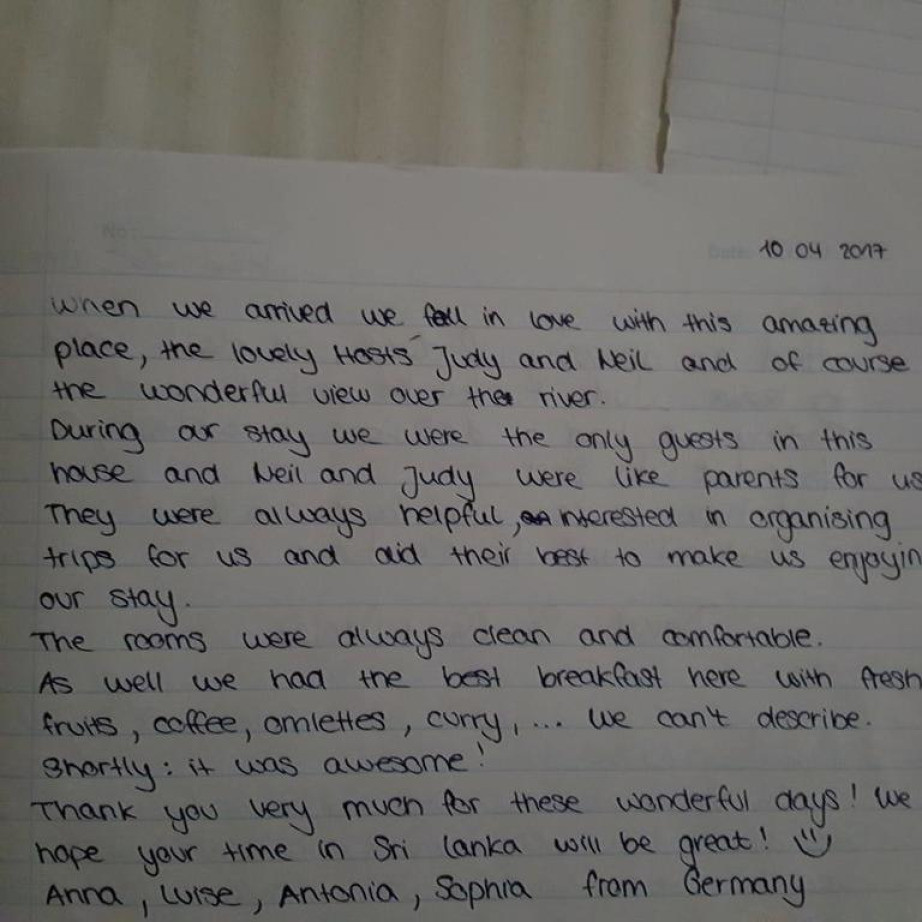 10 04 2017
when we arrived we fell in love with this amazing
place, the lovely Hosts Judy and Neil and of course
the wonderful view over the river.
During our stay we were the only guests in this
house and Neil and Judy were like parents for us
They were always helpful, interested in organising
trips for us and did their best to make us enjoyin
our stay.
The rooms were always clean and comfortable.
As well we had the best breakfast here with fresh
fruits, coffee, omlettes, curry, ... we can't describe.
Shortly: it was awesome!
Thank you very much for these wonderful days! We
hope your time in Sri Lanka will be great!
Anna, Luise, Antonia, Sophia from Germany